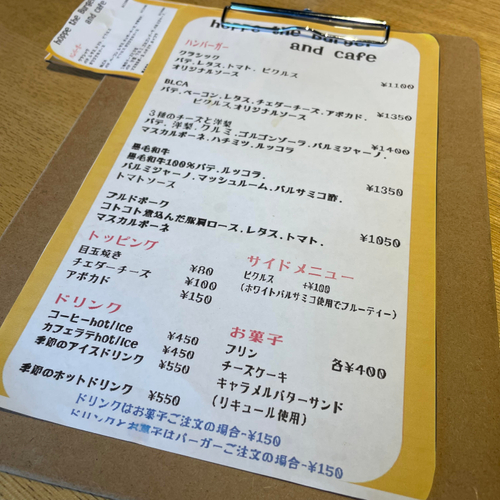 hoppe the Burger
and cafe
ハンバーガー
クラシック
パテ、レタス、トマト、ピクルス
オリジナルソース ¥1100
BLCA
パテ、ベーコン、レタス、チェダーチーズ、アボカド、
ピクルス、オリジナルソース ¥1350
3種のチーズと洋梨 ¥1400
パテ、洋梨、クルミ、ゴルゴンゾーラ、パルミジャーノ、
マスカルポーネ、ハチミツ、ルッコラ
黒毛和牛
黒毛和牛100%パテ、ルッコラ、
パルミジャーノ、マッシュルーム、バルサミコ酢、 ¥1350
トマトソース
プルドポーク
コトコト煮込んだ豚肩ロース、レタス、トマト、
マスカルポーネ ¥1050
トッピング
目玉焼き ¥80
チェダーチーズ ¥100
アボカド ¥150
サイドメニュー
ピクルス +¥100
(ホワイトバルサミコ使用でフルーティー)
ドリンク
コーヒーhot/ice ¥450
カフェラテhot/ice ¥450
季節のアイスドリンク ¥550
季節のホットドリンク ¥550
お菓子
プリン 各¥400
チーズケーキ
キャラメルバターサンド
(リキュール使用)
ドリンクはお菓子ご注文の場合-¥150
ドリンクとお菓子はバーガーご注文の場合-¥150
hoppe the Burger
and cafe